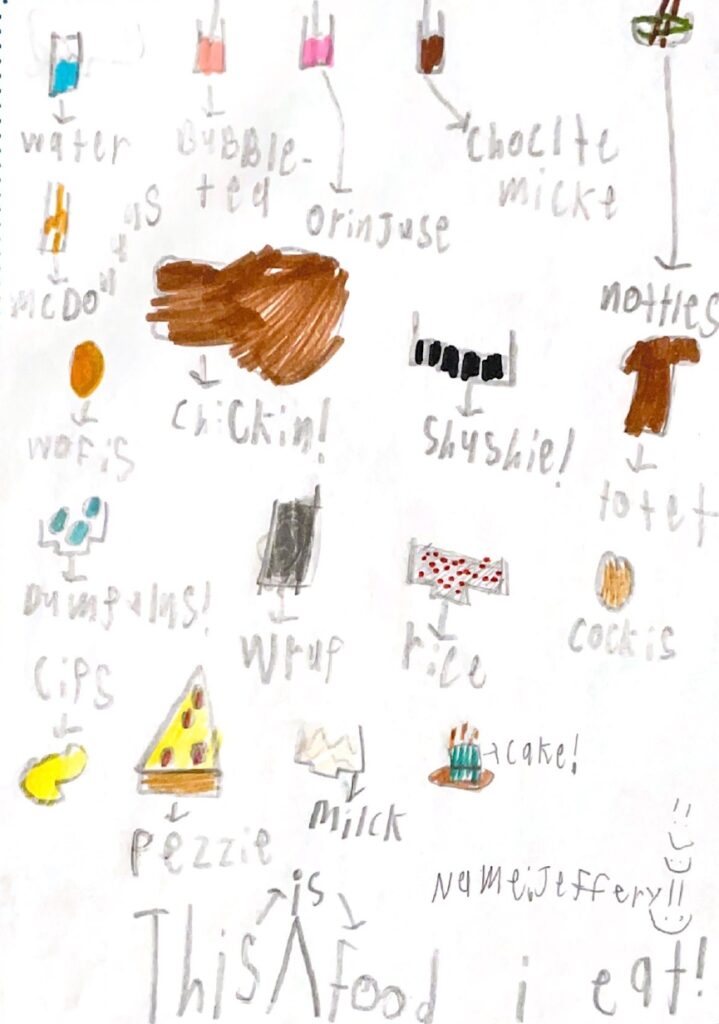 water
BUBBle-
tea
orinjuse
choclte
micke
nottles
McDonalds
chickin!
wafis
shushie!
totet
Dumpulns!
wrap
rice
cockis
cips
pezzie
Milck
cake!
Name: Jeffery!!
is
This ^ food i eat!